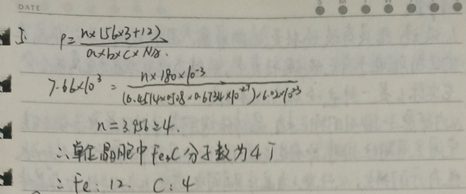 DATE
I. ρ = n×(56×3+12) / a×b×c×NA.
7.66×10³ = n×180×10⁻³ / (0.4514×0.508×0.6734×10⁻²⁷)×6.02×10²³
n=3.956≈4.
∴单位晶胞中Fe₃C分子数为4个
∴Fe:12. C:4